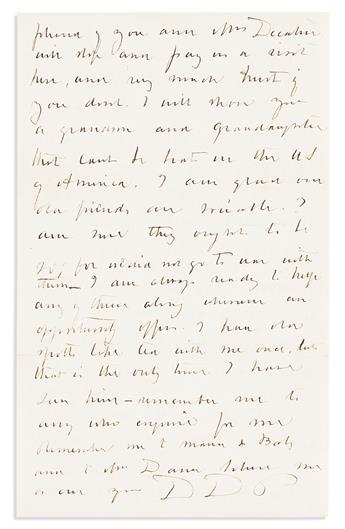 pleased if you and Mrs Decatur
will stop and pay us a visit
here, and very much hurt if
you dont. I will show you
a grandson and granddaughter
that cant be beat in the US
of America. I am glad our
old friends are sociable. I
am sure they ought to be
for we did not go to war with
them — I am always ready to help
any of them along whenever an
opportunity offers. I had old
take tea with me once, but
that is the only time I have
seen him — remember me to
any who enquire for me
Remember me to Mama & Bob
and to Mrs Dana, believe me
as ever yrs D D P